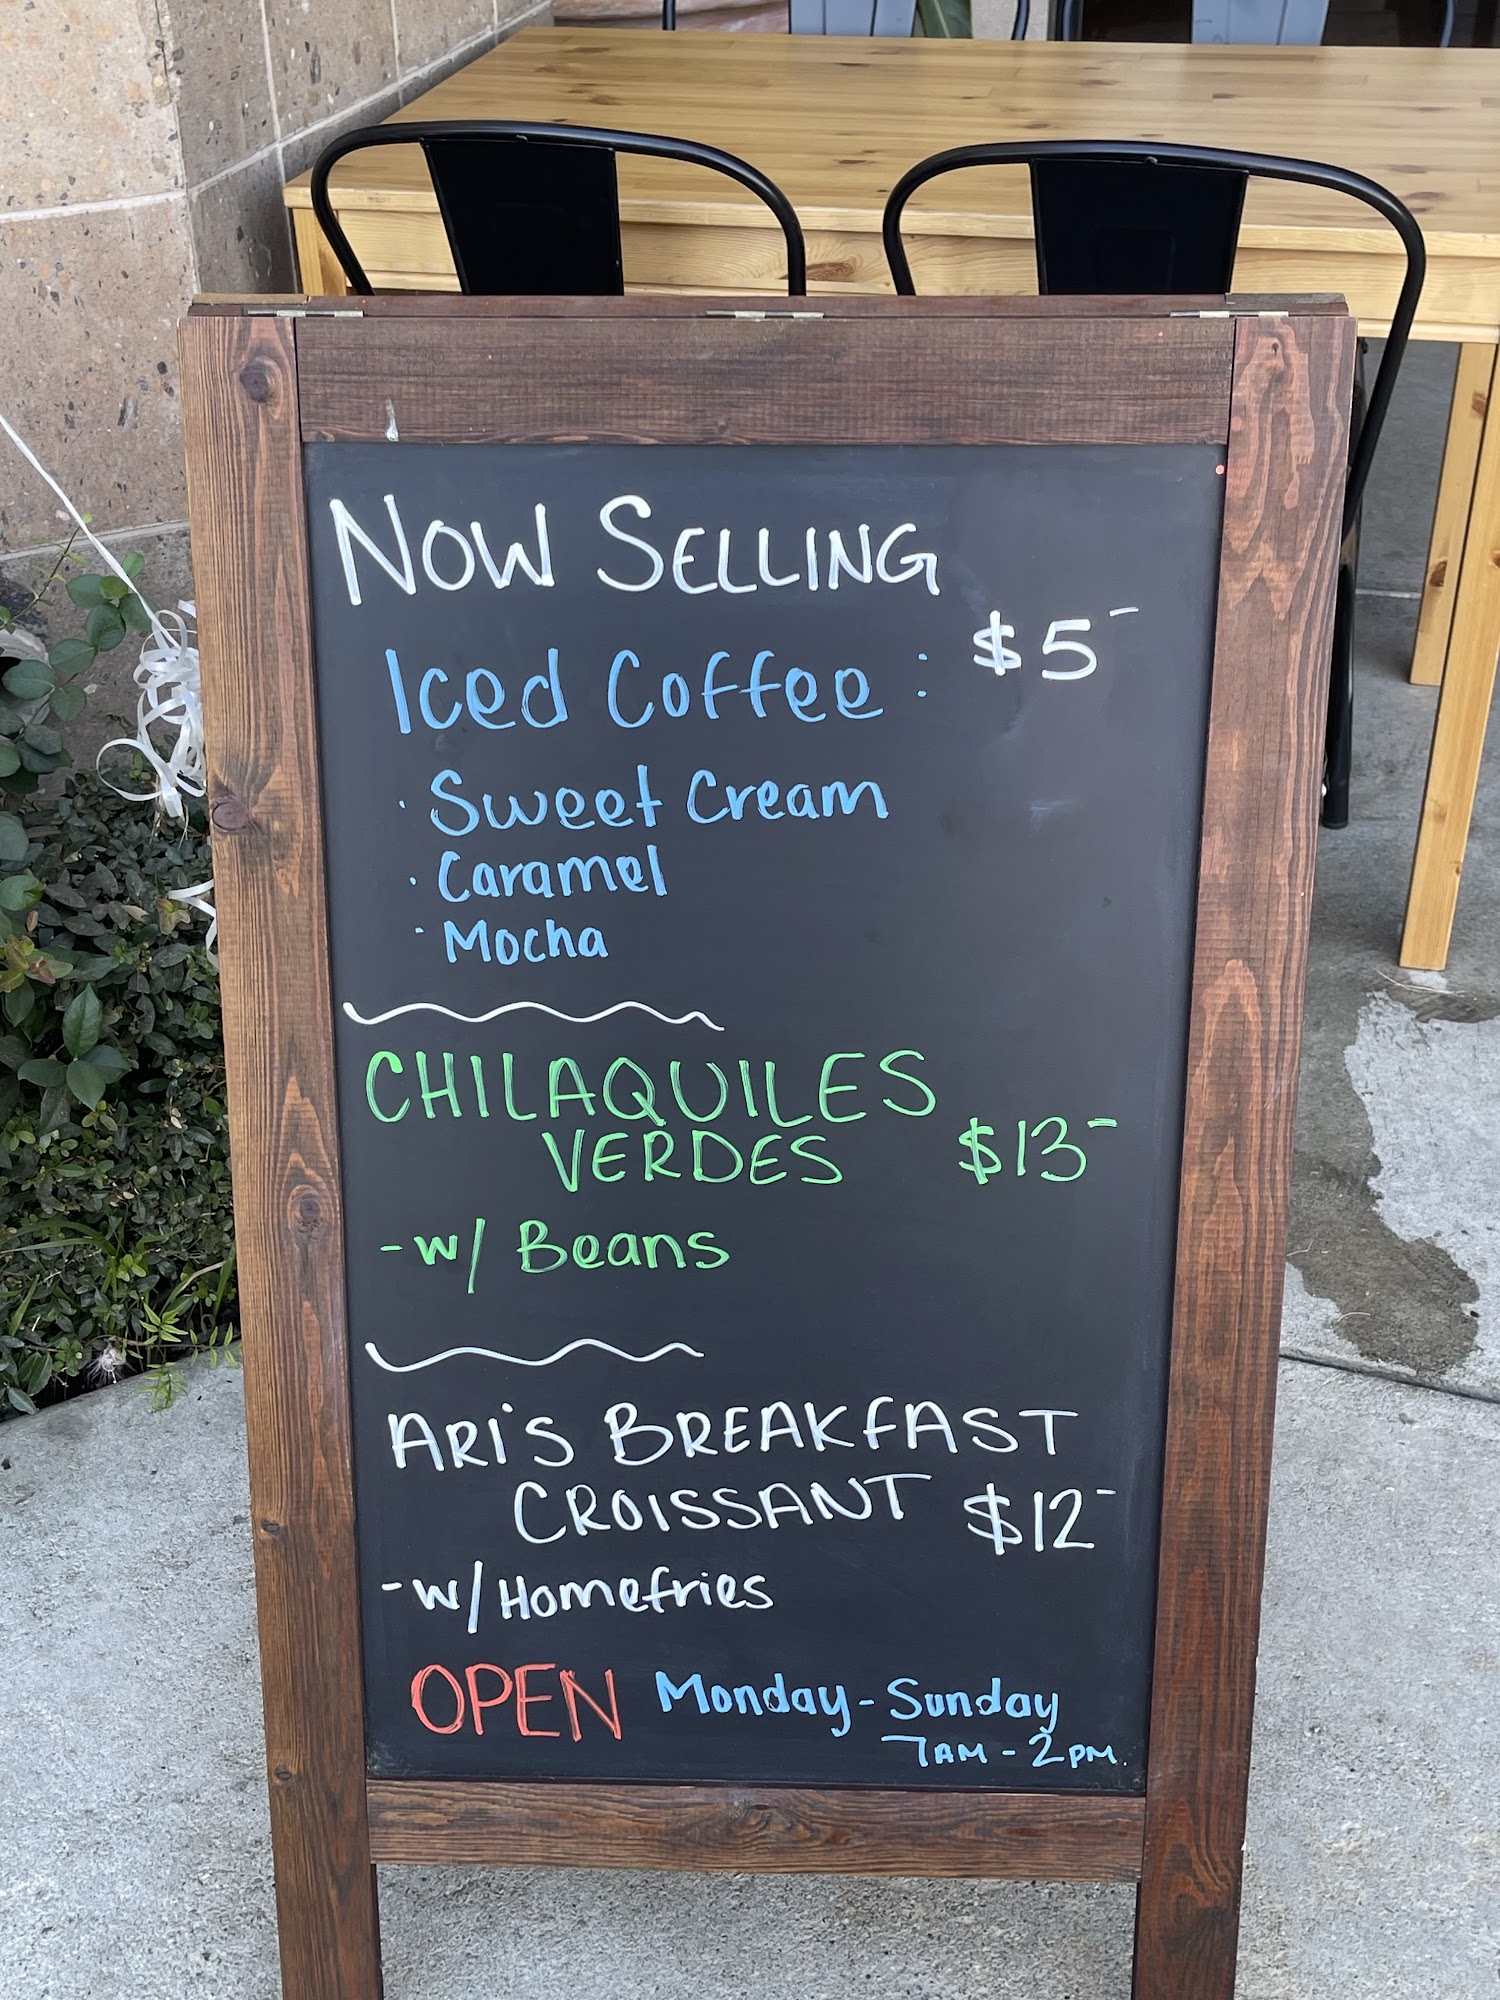 NOW SELLING
Iced Coffee : $5-
· Sweet Cream
· Caramel
· Mocha
CHILAQUILES
VERDES $13-
-w/ Beans
ARi'S BREAKFAST
CROISSANT $12-
-w/Homefries
OPEN Monday - Sunday
7AM - 2PM.